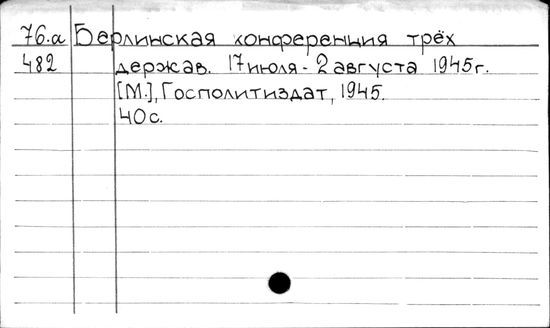 76.а Берлинская конференция трёх
482 держав. 17 июля - 2 августа 1945 г.
[М.], Госполитиздат, 1945.
40 с.